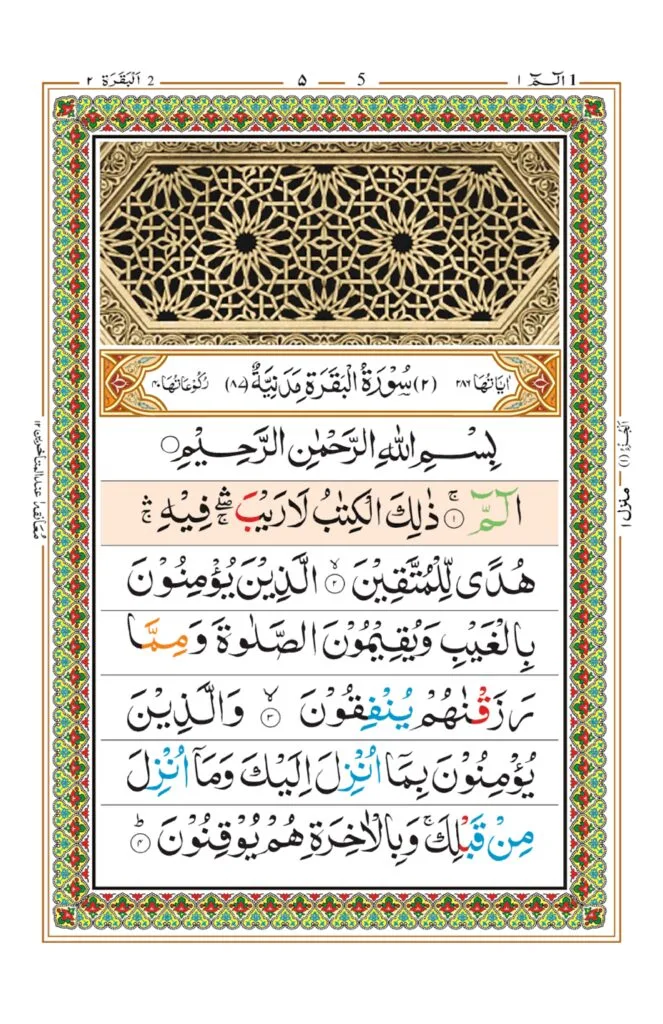 الٓمّٓ ١ 1
5 ۵
2 اَلْبَقَرَة ٢
اٰيَاتُهَا ٢٨٦ (٢) سُوْرَةُ الْبَقَرَةِ مَدَنِيَّةٌ (٨٧) رُكُوْعَاتُهَا ٤٠
بِسْمِ اللّٰهِ الرَّحْمٰنِ الرَّحِيْمِ
الٓمّٓ ۚ ﴿١﴾ ذٰلِكَ الْكِتٰبُ لَا رَيْبَ ۛۖۚ فِيْهِ ۛۚ
هُدًى لِّلْمُتَّقِيْنَ ۙ ﴿٢﴾ الَّذِيْنَ يُؤْمِنُوْنَ
بِالْغَيْبِ وَيُقِيْمُوْنَ الصَّلٰوةَ وَمِمَّا
رَزَقْنٰهُمْ يُنْفِقُوْنَ ۙ ﴿٣﴾ وَالَّذِيْنَ
يُؤْمِنُوْنَ بِمَاۤ اُنْزِلَ اِلَيْكَ وَمَاۤ اُنْزِلَ
مِنْ قَبْلِكَ ۚ وَبِالْاٰخِرَةِ هُمْ يُوْقِنُوْنَ ؕ ﴿٤﴾
اَلْجُزْءُ (١)
منزل ١
مُعَانَقَة عند المتأخرين ١٢